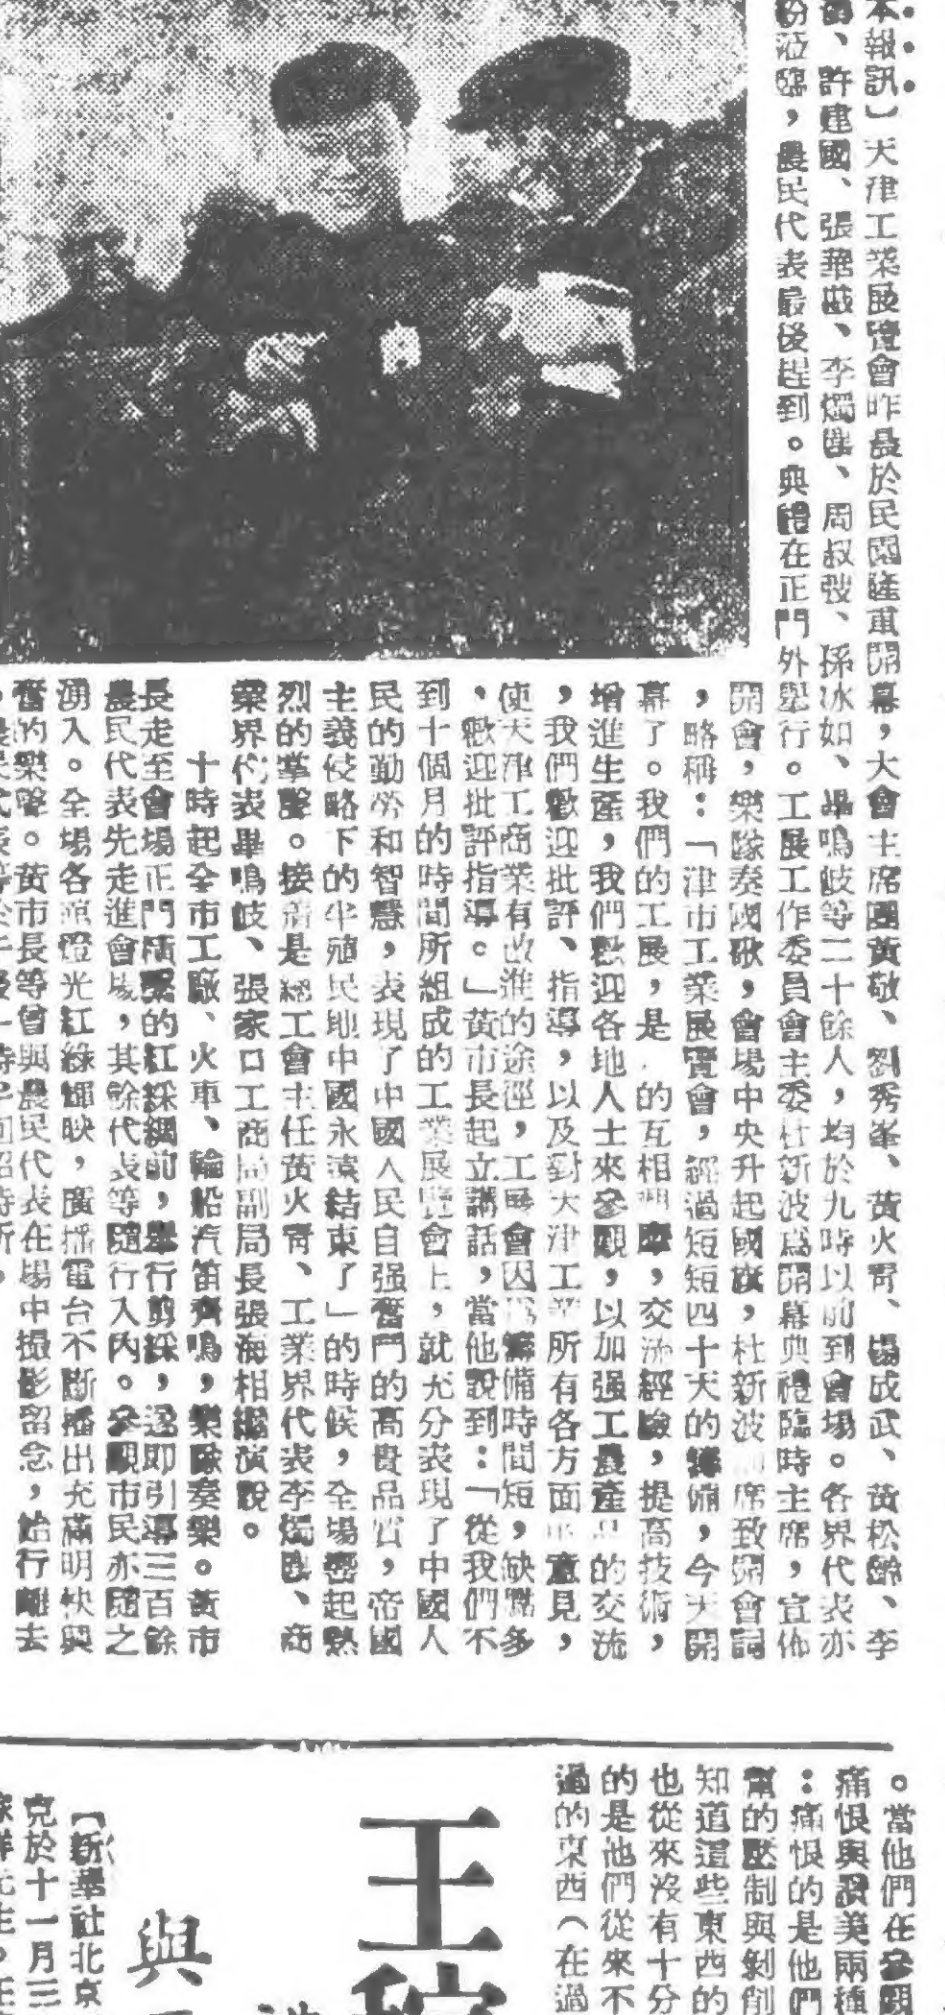 本報訊】天津工業展覽會昨晨於民園隆重開幕，大會主席團黃敬、劉秀峯、黃火青、楊成武、黃松齡、李
、許建國、張華、李燭塵、周叔弢、孫冰如、畢鳴岐等二十餘人，均於九時以前到會場。各界代表亦
紛蒞臨，農民代表最後趕到。典禮在正門外舉行。工展工作委員會主委杜新波爲開幕典禮臨時主席，宣佈
開會，樂隊奏國歌，會場中央升起國旗，杜新波主席致開會詞
，略稱：「津市工業展覽會，經過短短四十天的籌備，今天開
幕了。我們的工展，是的互相觀摩，交流經驗，提高技術，
增進生產，我們歡迎各地人士來參觀，以加强工農產品的交流
，我們歡迎批評、指導，以及對天津工業所有各方面的意見，
使天津工商業有改進的途徑，工展會因爲籌備時間短，缺點多
，歡迎批評指導。」黃市長起立講話，當他說到：「從我們不
到十個月的時間所組成的工業展覽會上，就充分表現了中國人
民的勤勞和智慧，表現了中國人民自强奮鬥的高貴品質，帝國
主義侵略下的半殖民地中國永遠結束了」的時候，全場響起熱
烈的掌聲。接着是總工會主任黃火青、工業界代表李燭塵、商
業界代表畢鳴岐、張家口工商局副局長張海相繼演說。
十時起全市工廠、火車、輪船汽笛齊鳴，樂隊奏樂。黃市
長走至會場正門橫繫的紅綵綢前，舉行剪綵，遂即引導三百餘
農民代表先走進會場，其餘代表等隨行入內。參觀市民亦隨之
湧入。全場各館燈光紅綠輝映，廣播電台不斷播出充滿明快興
奮的樂聲。黃市長等曾與農民代表在場中攝影留念，始行離去
。當他們在參觀
痛恨與讚美兩種
：痛恨的是他們
的壓制與剝削
知道這些東西的
也從來沒有十分
的是他們從來不
過的東西（在過
王稼
與
【新華社北京
克於十一月三